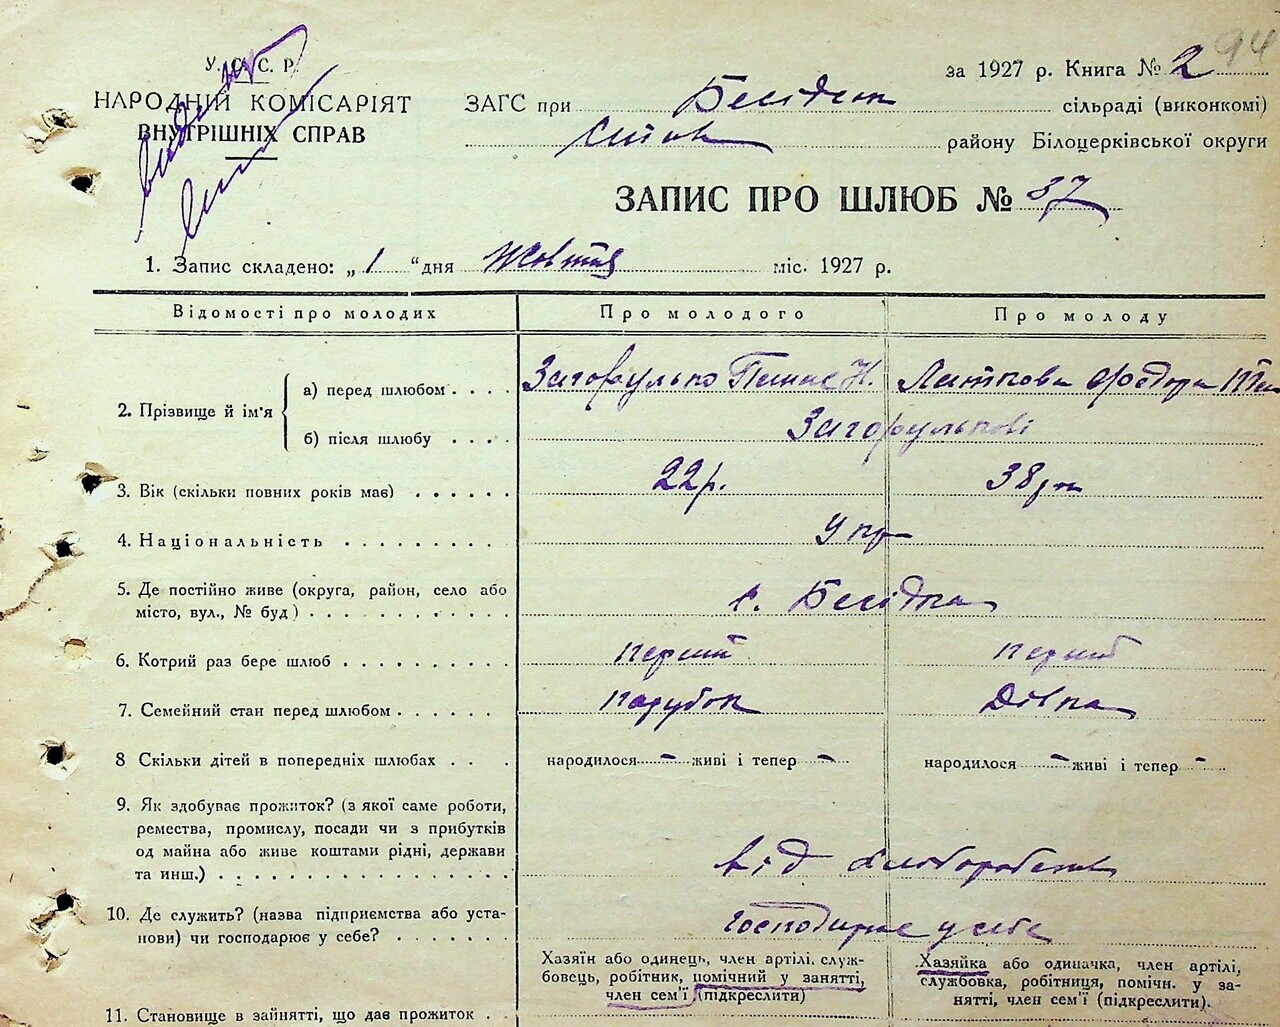 94
У. С. С. Р.
НАРОДНІЙ КОМІСАРІЯТ
ВНУТРІШНІХ СПРАВ
за 1927 р. Книга № 2
ЗАГС при Бесідськ сільраді (виконкомі)
району Білоцерківської округи
ЗАПИС ПРО ШЛЮБ № 37
1. Запис складено: „ 1 “ дня Жовтня міс. 1927 р.
Відомості про молодих Про молодого Про молоду
2. Прізвище й ім'я
а) перед шлюбом . . . . Загорулько Панас Н. Федора
б) після шлюбу . . . . Загорулькові
3. Вік (скільки повних років має) . . . . . . 22 р. 38 рок
4. Національність . . . . . . . . . Укр
5. Де постійно живе (округа, район, село або
місто, вул., № буд.) . . . . . . . . . . с. Бесідка
6. Котрий раз бере шлюб . . . . . . . . . перший перший
7. Семейний стан перед шлюбом . . . . . . парубок Дівка
8 Скільки дітей в попередніх шлюбах . . . народилося - живі і тепер - народилося - живі і тепер -
9. Як здобуває прожиток? (з якої саме роботи,
ремества, промислу, посади чи з прибутків
од майна або живе коштами рідні, держави
та инш.) . . . . . . . . . . . . . . . . від хліборобства
10. Де служить? (назва підприємства або уста-
нови) чи господарює у себе? . . . . . . . господарює у себе
Хазяїн або одинець, член артілі, служ-
бовець, робітник, помічний у занятті,
член сем'ї (підкреслити)
Хазяйка або одиначка, член артілі,
службовка, робітниця, помічн. у за-
нятті, член сем'ї (підкреслити).
11. Становище в зайнятті, що дає прожиток .